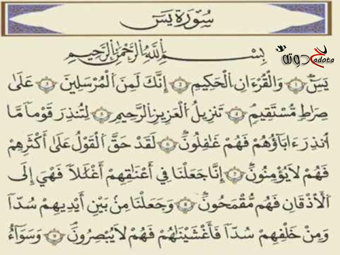 سُورَةُ يسٓ
بِسْمِ اللَّهِ الرَّحْمَٰنِ الرَّحِيمِ
يسٓ ١ وَالْقُرْءَانِ الْحَكِيمِ ٢ إِنَّكَ لَمِنَ الْمُرْسَلِينَ ٣ عَلَىٰ
صِرَاطٍ مُّسْتَقِيمٍ ٤ تَنزِيلَ الْعَزِيزِ الرَّحِيمِ ٥ لِتُنذِرَ قَوْمًا مَّا
أُنذِرَ ءَابَاؤُهُمْ فَهُمْ غَافِلُونَ ٦ لَقَدْ حَقَّ الْقَوْلُ عَلَىٰ أَكْثَرِهِمْ
فَهُمْ لَا يُؤْمِنُونَ ٧ إِنَّا جَعَلْنَا فِي أَعْنَاقِهِمْ أَغْلَالًا فَهِيَ إِلَى
الْأَذْقَانِ فَهُم مُّقْمَحُونَ ٨ وَجَعَلْنَا مِن بَيْنِ أَيْدِيهِمْ سَدًّا
وَمِنْ خَلْفِهِمْ سَدًّا فَأَغْشَيْنَاهُمْ فَهُمْ لَا يُبْصِرُونَ ٩ وَسَوَاءٌ